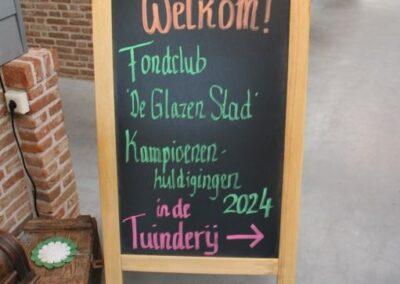 Welkom!
Fondclub
'De Glazen Stad'
Kampioenen-
huldigingen
in de 2024
Tuinderij →